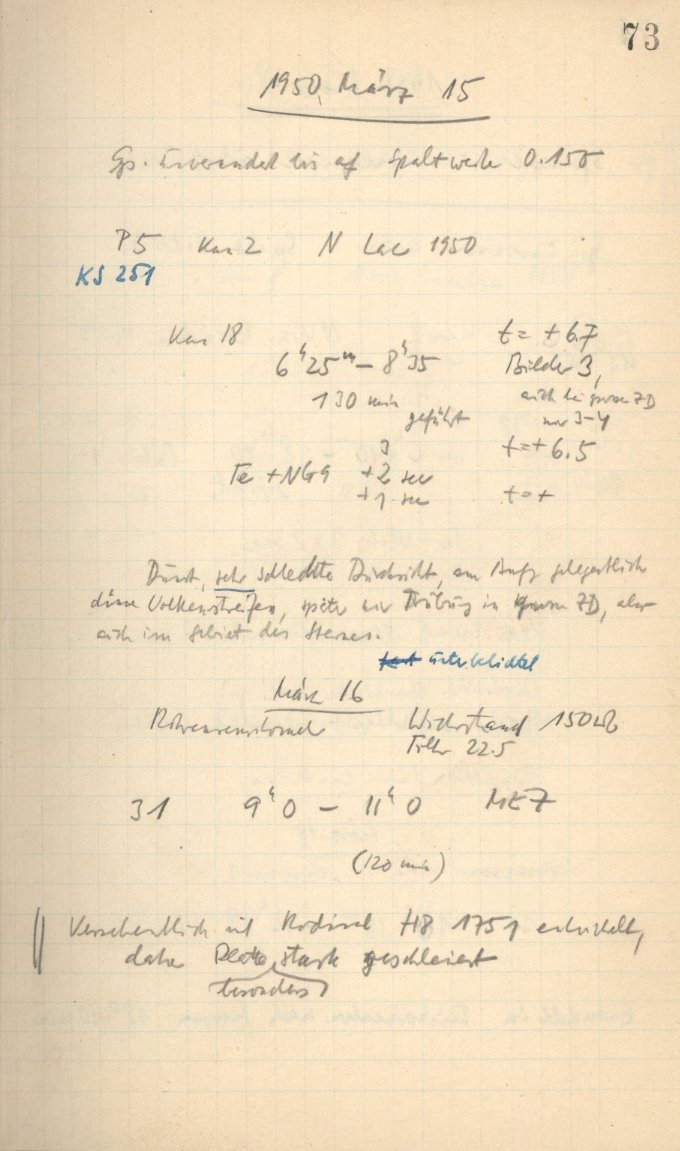 73
1950 März 15
Sp. unverändert bis auf Spaltweite 0.150
P5 Kas 2 N Lac 1950
KS 251
Kas 18 t = +6.7
6ʰ25ᵐ – 8ʰ35 Bilder 3,
130 min auch bei grosse ZD
geführt nur 3-4
3 t=+6.5
Te + NG9 +2 sec
+1 sec t=+
Dunst, sehr schlechte Durchsicht, am Anfg gelegentlich
dünne Wolkenstreifen, später nur Trübung in grosse ZD, aber
auch im Gebiet des Sternes.
unterbelichtet
März 16
Widerstand 150
22.5
31 9ʰ0 – 11ʰ0 MEZ
(120 min)
Versehentlich mit Rodinal 1751 entwickelt,
daher Platte stark geschleiert
besonders